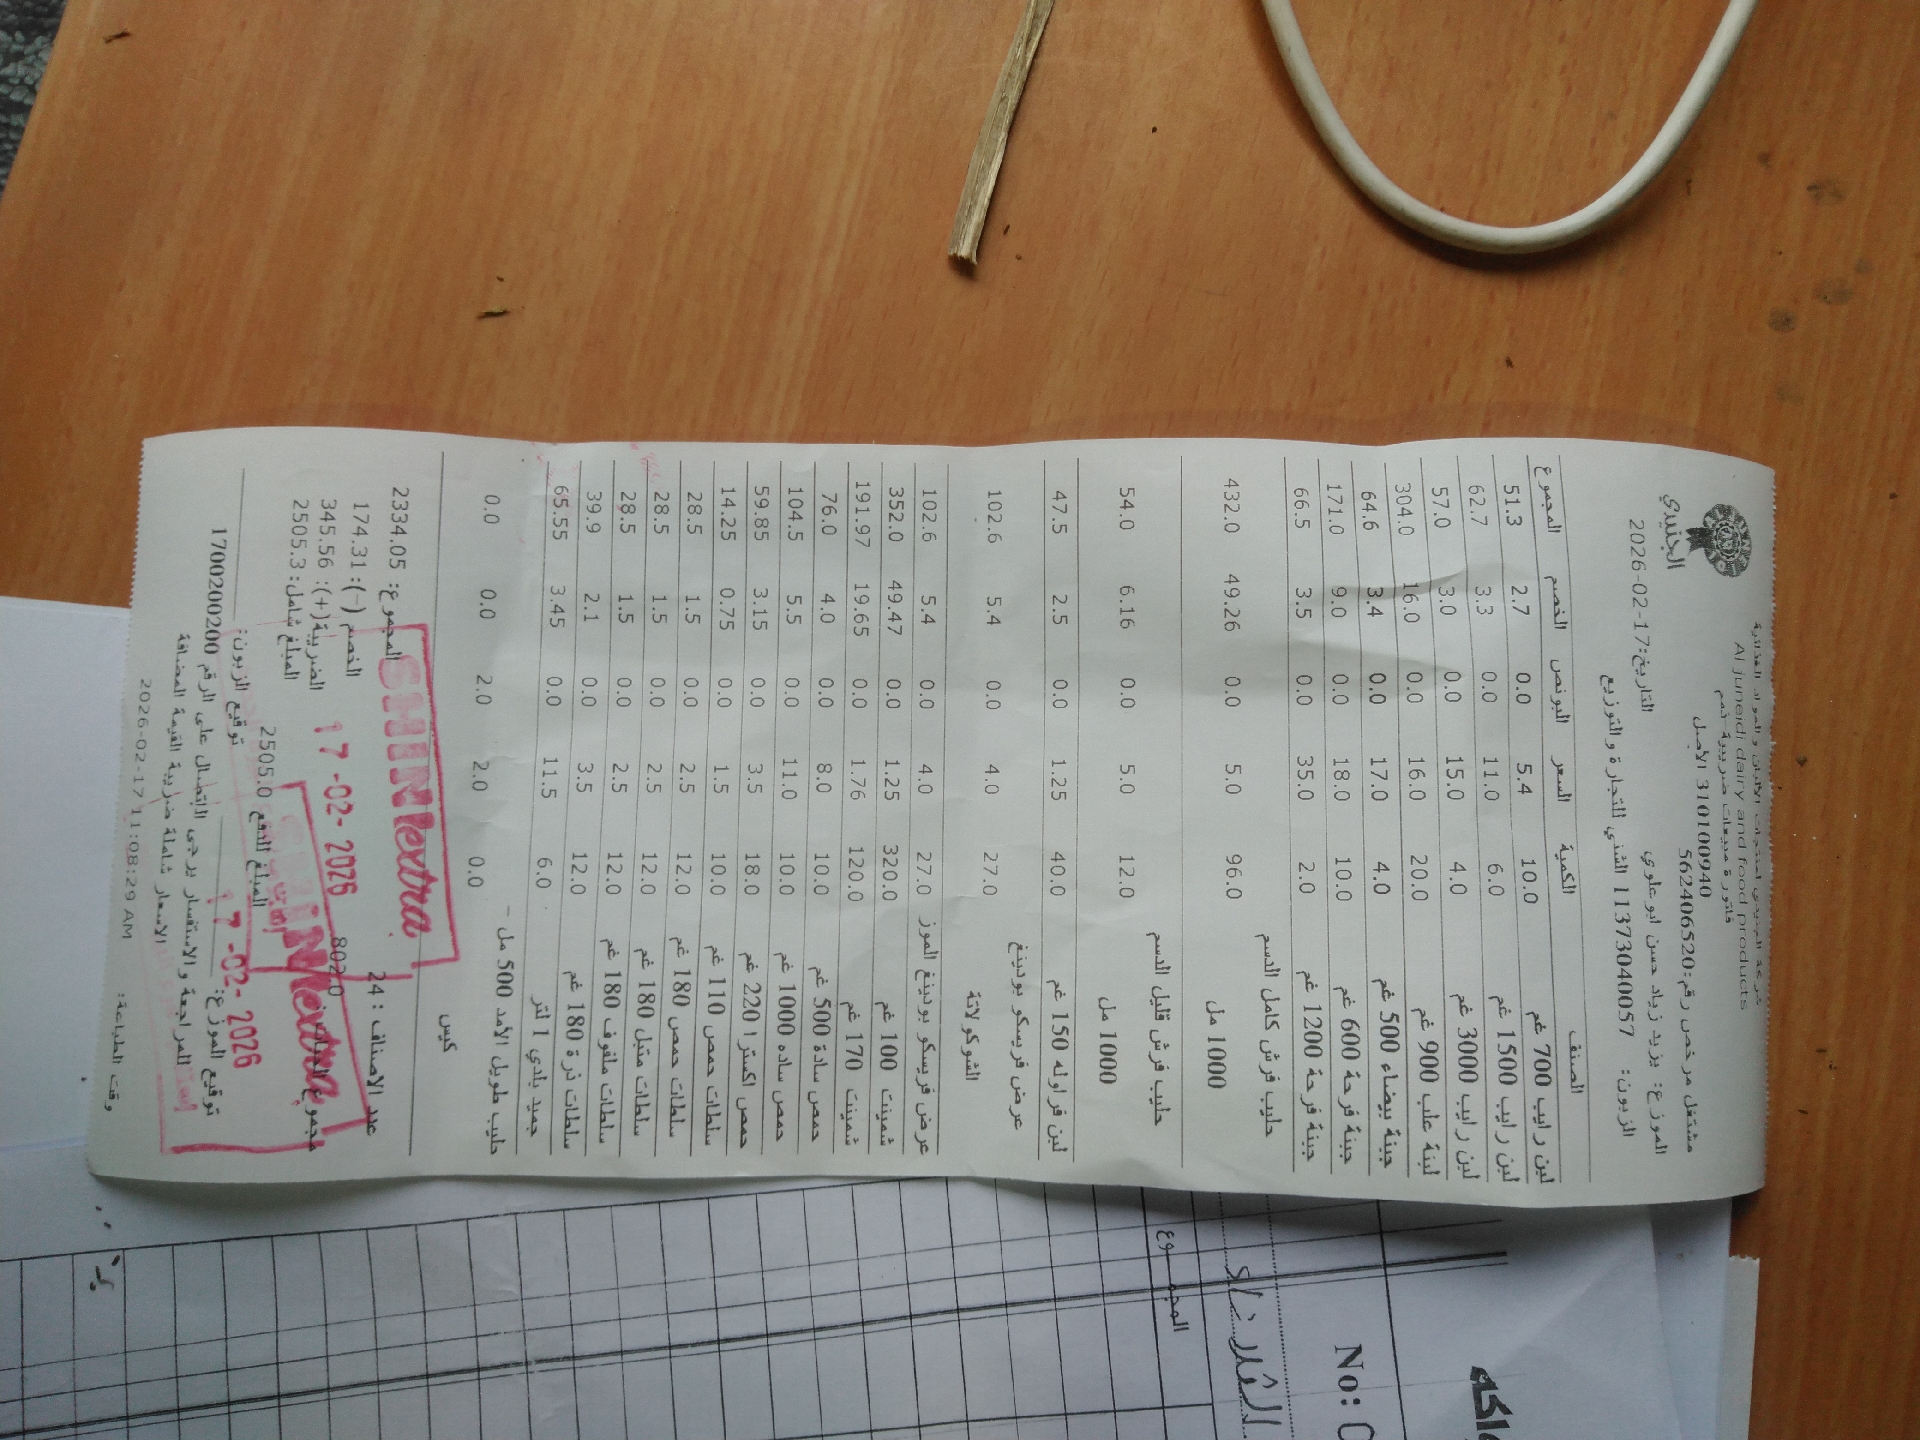 الجنيدي
شركة الجنيدي لمنتجات الألبان والمواد الغذائية
Al juneidi dairy and food products
فاتورة مبيعات ضريبية - نسخة
310100940 الأصيل
مشتغل مرخص رقم: 562406520
التاريخ: 2026-02-17
الموزع: يزيد زياد حسن ابو علوي
الزبون: 11373040057 الشني للتجارة والتوزيع
الصنف الكمية السعر البونص الخصم المجموع
لبن رايب 700 غم 10.0 5.4 0.0 2.7 51.3
لبن رايب 1500 غم 6.0 11.0 0.0 3.3 62.7
لبن رايب 3000 غم 4.0 15.0 0.0 3.0 57.0
لبنة علب 900 غم 20.0 16.0 0.0 16.0 304.0
جبنة بيضاء 500 غم 4.0 17.0 0.0 3.4 64.6
جبنة فرحة 600 غم 10.0 18.0 0.0 9.0 171.0
جبنة فرحة 1200 غم 2.0 35.0 0.0 3.5 66.5
حليب فرش كامل الدسم 1000 مل 96.0 5.0 0.0 49.26 432.0
حليب فرش قليل الدسم 1000 مل 12.0 5.0 0.0 6.16 54.0
لبن فراوله 150 غم 40.0 1.25 0.0 2.5 47.5
عرض فريسكو بودينغ الشوكولاتة 27.0 4.0 0.0 5.4 102.6
عرض فريسكو بودينغ الموز 27.0 4.0 0.0 5.4 102.6
شمينت 100 غم 320.0 1.25 0.0 49.47 352.0
شمينت 170 غم 120.0 1.76 0.0 19.65 191.97
حمص سادة 500 غم 10.0 8.0 0.0 4.0 76.0
حمص ساده 1000 غم 10.0 11.0 0.0 5.5 104.5
حمص اكسترا 220 غم 18.0 3.5 0.0 3.15 59.85
سلطات حمص 110 غم 10.0 1.5 0.0 0.75 14.25
سلطات حمص 180 غم 12.0 2.5 0.0 1.5 28.5
سلطات متبل 180 غم 12.0 2.5 0.0 1.5 28.5
سلطات ملفوف 180 غم 12.0 2.5 0.0 1.5 28.5
سلطات ذرة 180 غم 12.0 3.5 0.0 2.1 39.9
جميد بلدي 1 لتر 6.0 11.5 0.0 3.45 65.55
حليب طويل الأمد 500 مل - كيس 0.0 2.0 2.0 0.0 0.0
عدد الاصناف: 24
المجموع: 2334.05
802.0
الخصم (-): 174.31
الضريبة(+): 345.56
المبلغ شامل: 2505.3
المبلغ للدفع 2505.0
SHINI extra
17 -02- 2026
extra
17 -02- 2026
توقيع الموزع:
توقيع الزبون:
للمراجعة والاستفسار يرجى الاتصال على الرقم 1700200200
الاسعار شاملة ضريبة القيمة المضافة
وقت الطباعة: 2026-02-17 11:08:29 AM
المجموع
No: 0